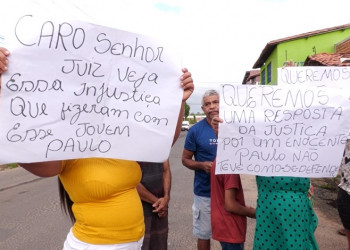 CARO Senhor
JUIZ VEJA
ESSA INJUSTIÇA
QUE FIZERAM COM
ESSE JOVEM
PAULO
QUEREMOS
QUEREMOS
UMA RESPOSTA
DA JUSTIÇA
POR UM ENOCENTE
PAULO NÃO
TEVE COMO SE DEFEN